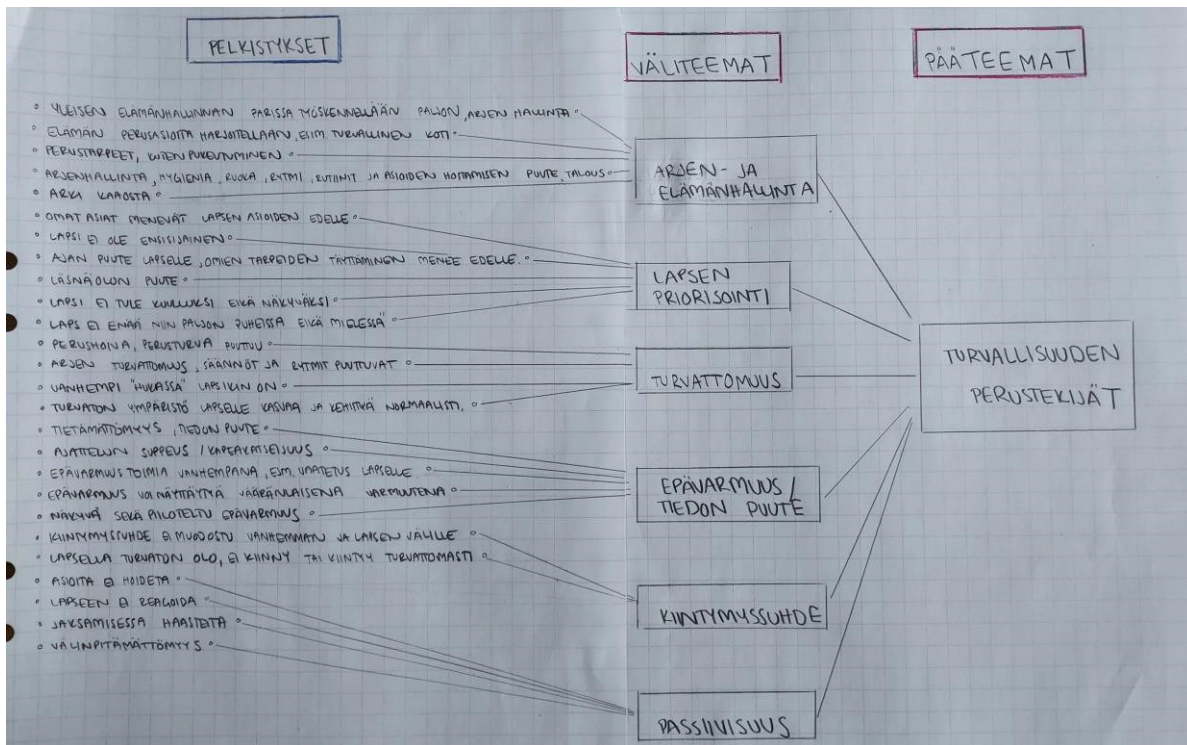 PELKISTYKSET
VÄLITEEMAT
PÄÄTEEMAT
YLEISEN ELÄMÄNHALLINNAN PARISSA TYÖSKENNELLÄÄN PALJON, ARJEN HALLINTA
ELÄMÄN PERUSASIOITA HARJOITELLAAN, ESIM. TURVALLINEN KOTI
PERUSTARPEET, KUTEN PUKEUTUMINEN
ARJENHALLINTA, HYGIENIA, RUOKA, RYTMI, RUTIINIT JA ASIOIDEN HOITAMISEN PUUTE, TALOUS
ARKI KAAOSTA
OMAT ASIAT MENEVÄT LAPSEN ASIOIDEN EDELLE
LAPSI EI OLE ENSISIJAINEN
AJAN PUUTE LAPSELLE, OMIEN TARPEIDEN TÄYTTÄMINEN MENEE EDELLE.
LÄSNÄOLON PUUTE
LAPSI EI TULE KUULLUKSI EIKÄ NÄKYVÄKSI
LAPS EI ENÄÄ NIIN PALJON PUHEISSA EIKÄ MIELESSÄ
PERUSHOIVA, PERUSTURVA PUUTUU
ARJEN TURVATTOMUUS, SÄÄNNÖT JA RYTMIT PUUTTUVAT
VANHEMPI "HUKASSA" LAPSIKIN ON
TURVATON YMPÄRISTÖ LAPSELLE KASVAA JA KEHITTYÄ NORMAALISTI.
TIETÄMÄTTÖMYYS, TIEDON PUUTE
AJATTELUN SUPPEUS / KAPEAKATSEISUUS
EPÄVARMUUS TOIMIA VANHEMPANA, ESIM. VAATETUS LAPSELLE
EPÄVARMUUS VOI NÄYTTÄYTYÄ VÄÄRÄNLAISENA VARMUUTENA
NÄKYVÄ SEKÄ PIILOTELTU EPÄVARMUUS
KIINTYMYSSUHDE EI MUODOSTU VANHEMMAN JA LAPSEN VÄLILLE
LAPSELLA TURVATON OLO, EI KIINNY TAI KIINTYY TURVATTOMASTI
ASIOITA EI HOIDETA
LAPSEEN EI REAGOIDA
JAKSAMISESSA HAASTEITA
VÄLINPITÄMÄTTÖMYYS
ARJEN- JA
ELÄMÄNHALLINTA
LAPSEN
PRIORISOINTI
TURVATTOMUUS
EPÄVARMUUS /
TIEDON PUUTE
KIINTYMYSSUHDE
PASSIIVISUUS
TURVALLISUUDEN
PERUSTEKIJÄT